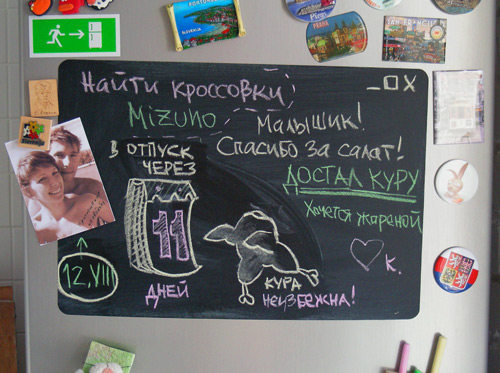 PORTOROŽ
Piran
PRAHA
SAN FRANCISCO
НАЙТИ КРОССОВКИ
_ □ X
MIZUNO
МАЛЫШИК!
СПАСИБО ЗА САЛАТ!
В ОТПУСК
ЧЕРЕЗ
11
ДНЕЙ
ДОСТАЛ КУРУ
ХОЧЕТСЯ ЖАРЕНОЙ
♡ К.
КУРА
НЕИЗБЕЖНА!
12, VIII